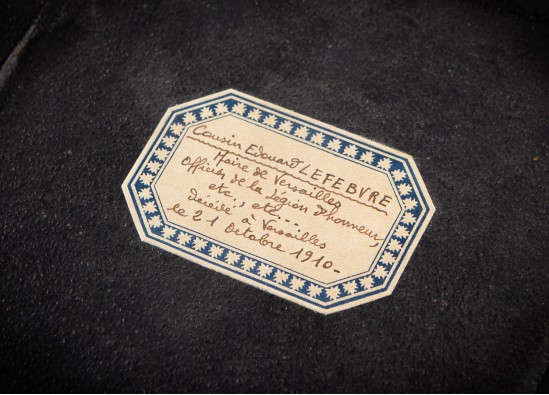 Cousin Edouard LEFEBVRE
Maire de Versailles
Officier de la Légion d'honneur,
etc., etc...
Décédé à Versailles
le 21 Octobre 1910-